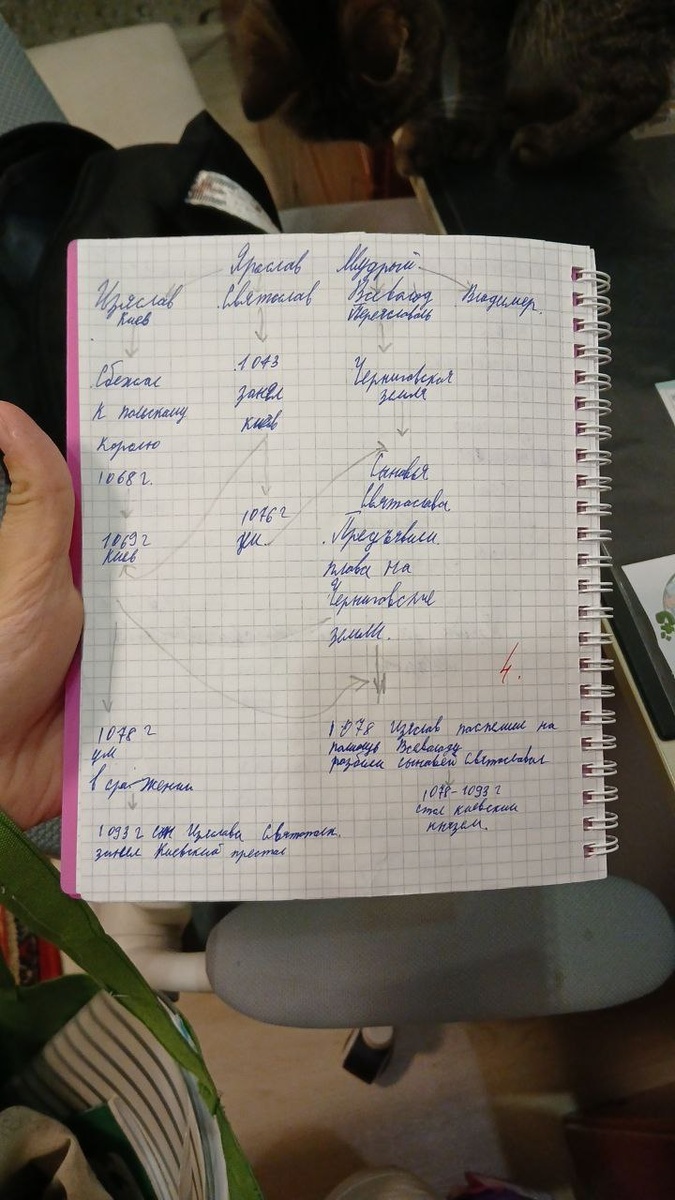 Ярослав Мудрый
Изяслав
Киев
Сбежал
к польскому
королю
1068 г.
1069 г
Киев
1078 г
ум
в сражении
1093 г сын Изяслава Святополк.
занел Киевский престол
Святослав
1073
занел
киев
1076 г
ум.
Всеволод
Переяславль
Черниговская
земля
Сыновья
Святослава
Предъявили
плава на
Черниговские
земли.
4.
1078 Изяслав поспешил на
помощь Всеволоду
розбили сыновей Святослава
1078-1093 г
стал киевским
князем.
Владимир.